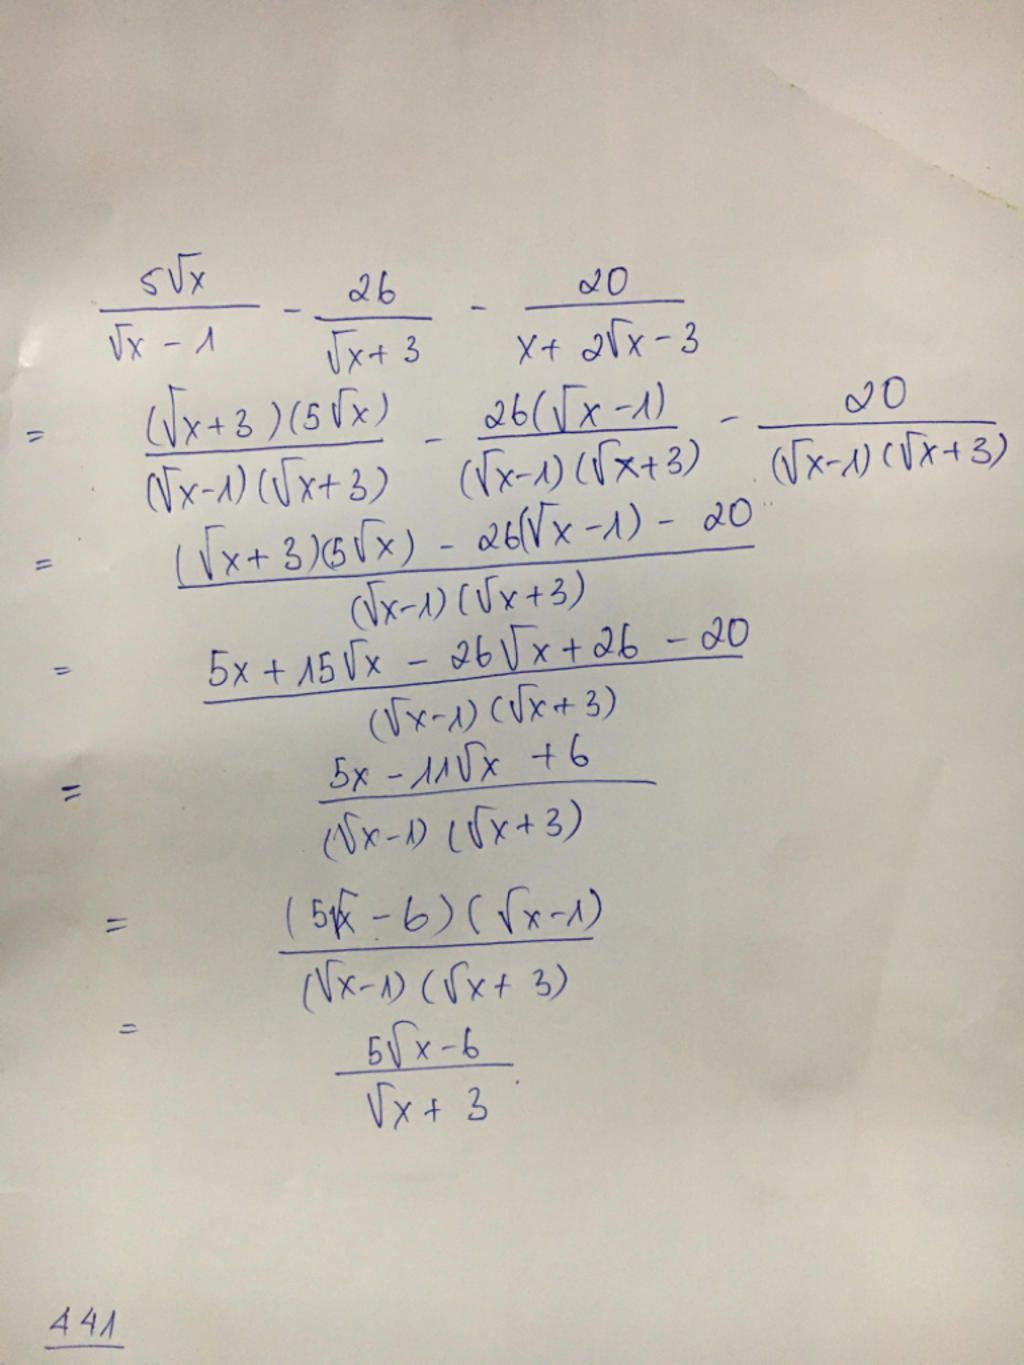 5√x / (√x - 1) - 26 / (√x + 3) - 20 / (x + 2√x - 3)
= (√x + 3)(5√x) / (√x - 1)(√x + 3) - 26(√x - 1) / (√x - 1)(√x + 3) - 20 / (√x - 1)(√x + 3)
= (√x + 3)(5√x) - 26(√x - 1) - 20 / (√x - 1)(√x + 3)
= 5x + 15√x - 26√x + 26 - 20 / (√x - 1)(√x + 3)
= 5x - 11√x + 6 / (√x - 1)(√x + 3)
= (5√x - 6)(√x - 1) / (√x - 1)(√x + 3)
= 5√x - 6 / √x + 3
441